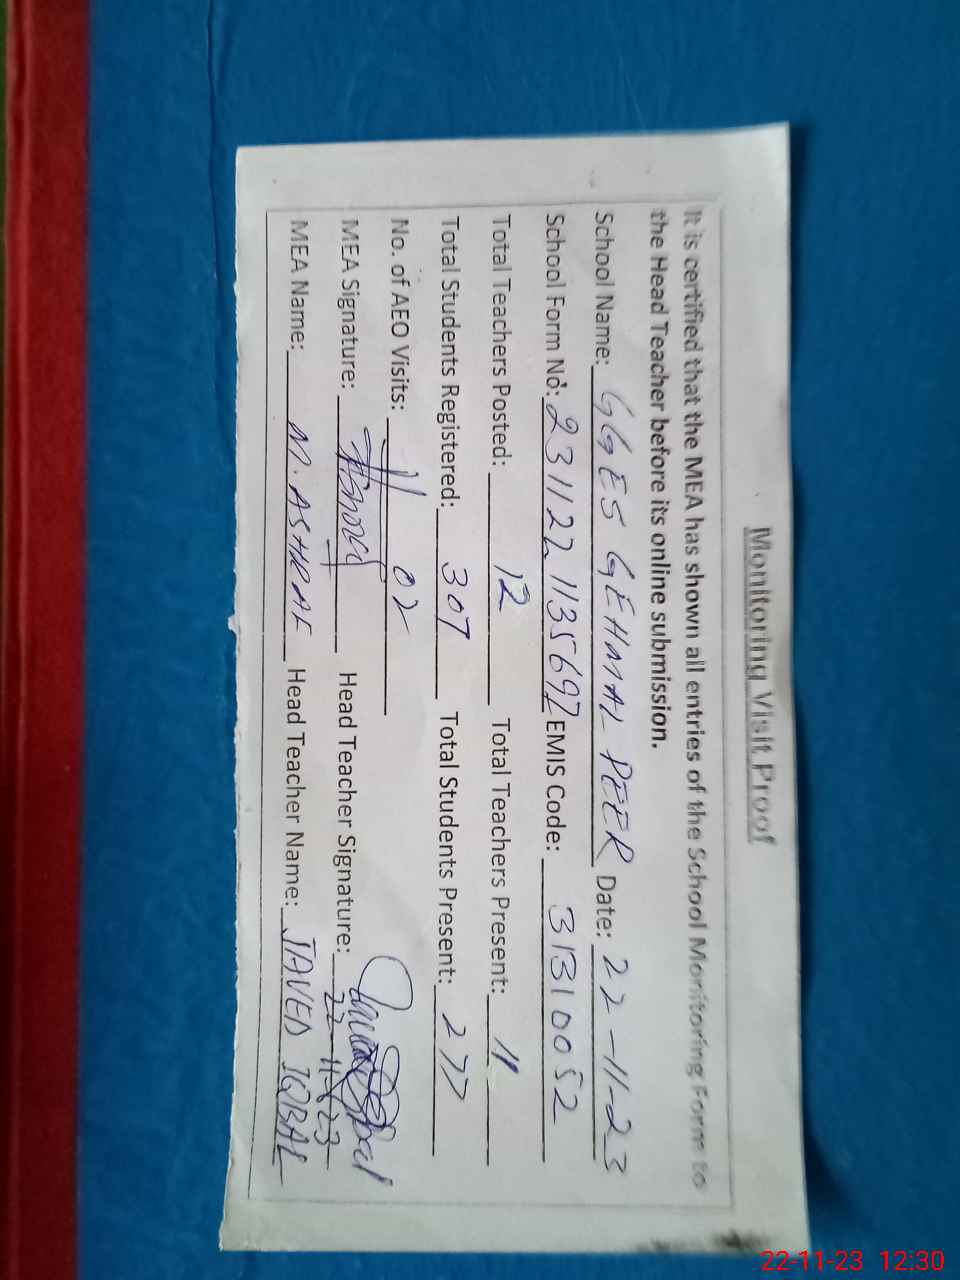 Monitoring Visit Proof
It is certified that the MEA has shown all entries of the School Monitoring Form to
the Head Teacher before its online submission.
School Name: GGES GEHMAL PEER Date: 22-11-23
School Form No: 231122113569 EMIS Code: 31310052
Total Teachers Posted: 12 Total Teachers Present: 11
Total Students Registered: 307 Total Students Present: 277
No. of AEO Visits: 02
MEA Signature: Head Teacher Signature: 22-11-23
MEA Name: M. ASHRAF Head Teacher Name: JAVED IQBAL
22-11-23 12:30